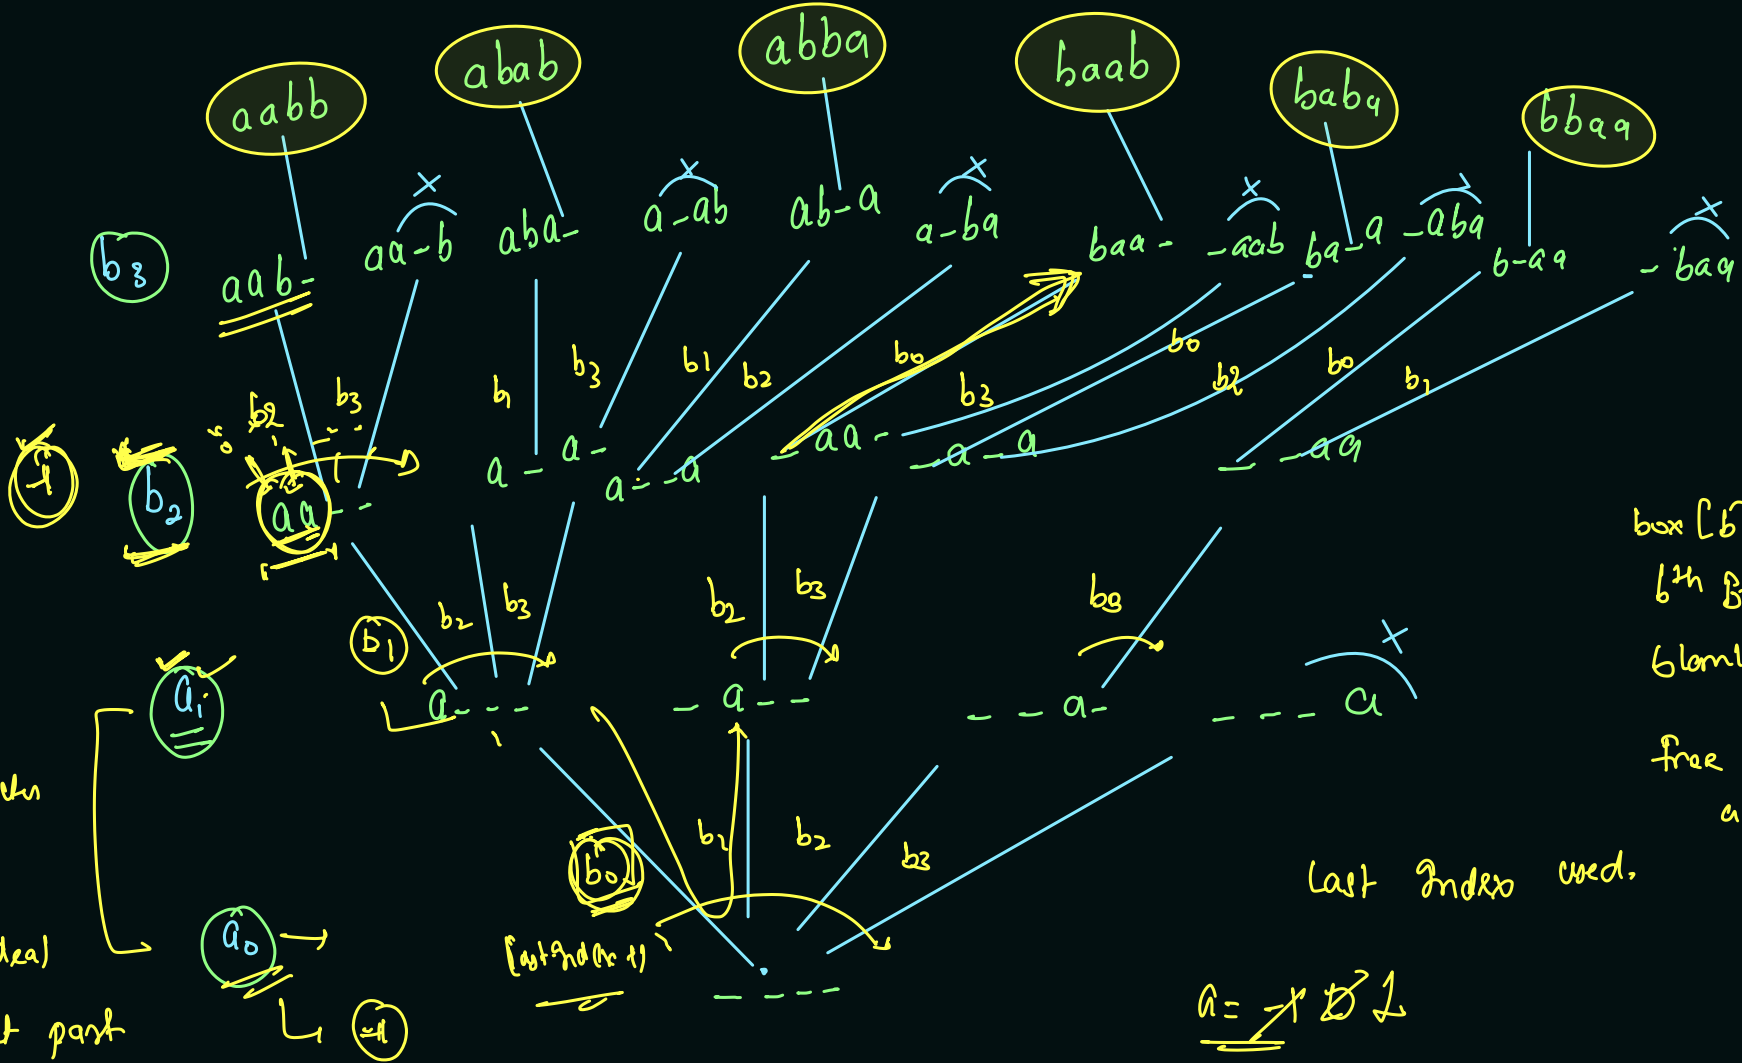 aabb abab abba baab baba bbaa
x x x x x
b3 aab- aa-b aba- a-ab ab-a a-ba baa- -aab ba-a -aba b-aa -baa
b1 b3 b1 b2 b0 b3 b0 b2 b0 b1
b2 b3
-1 b2 aa-- a- a- a--a -aa- -a-a --aa
box [b
bth B
b1 b2 b3 b2 b3 b0 x
ai a--- -a-- --a- ---a
free
a
b0 b1 b2 b3
Last Index used.
a0
----
past -1
a= -1 0 1